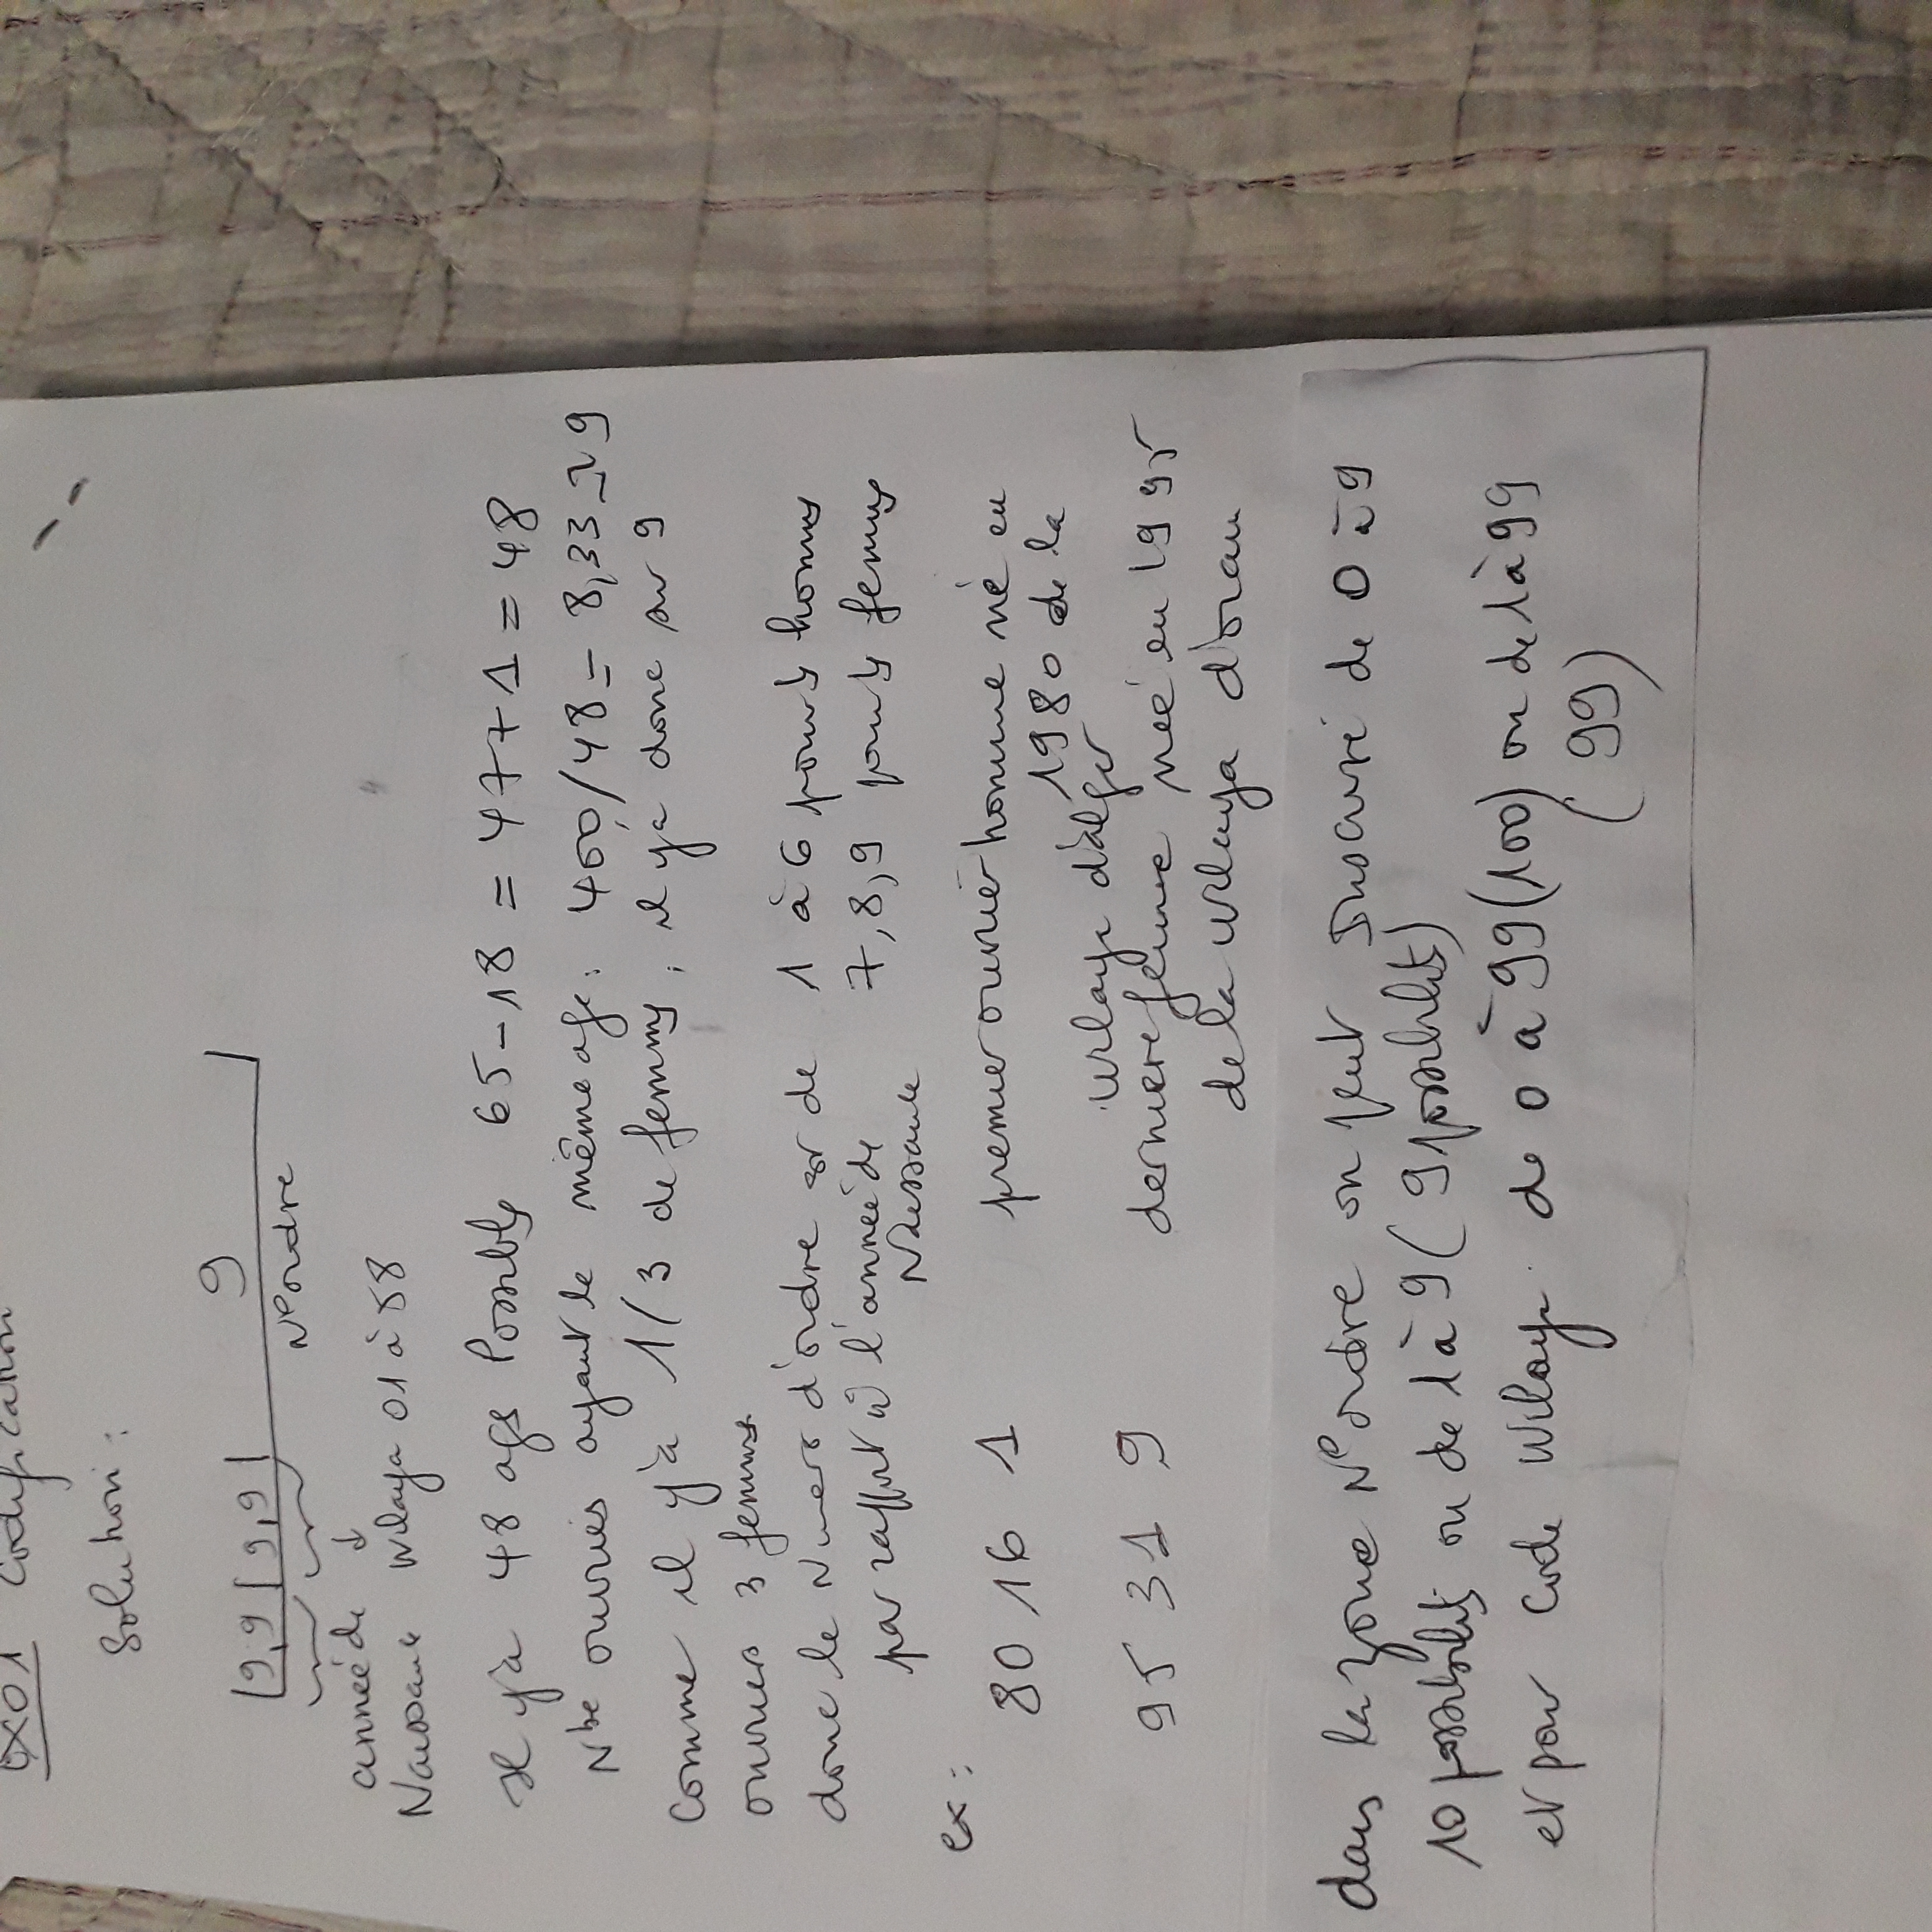 EX01 Codification
Solution :
|9,9|9,9| 9 |
N° ordre
année de ↓
Naissance Wilaya 01 à 58
Il y'a 48 ages Possibles 65-18 = 47+1 = 48
Nbe ouvriers ayant le même age : 400/48 = 8,33 ≃ 9
Comme il y'a 1/3 de femmes, il y'a donc sur 9
ouvriers 3 femmes
donc le Numero d'ordre est de 1 à 6 pour les hommes
par rapport à l'année de 7,8,9 pour les femmes
Naissance
ex :
80 16 1 premier ouvrier homme né en
1980 de la
wilaya d'alger
95 31 9 derniere femme née en 1995
de la wilaya d'oran
dans la zone N° ordre on peut de 0 à 9
10 possibilités ou de 1 à 9 ( 9 possibilités)
et pour Code Wilaya de 0 à 99 (100) ou de 1 à 99
( 99 )